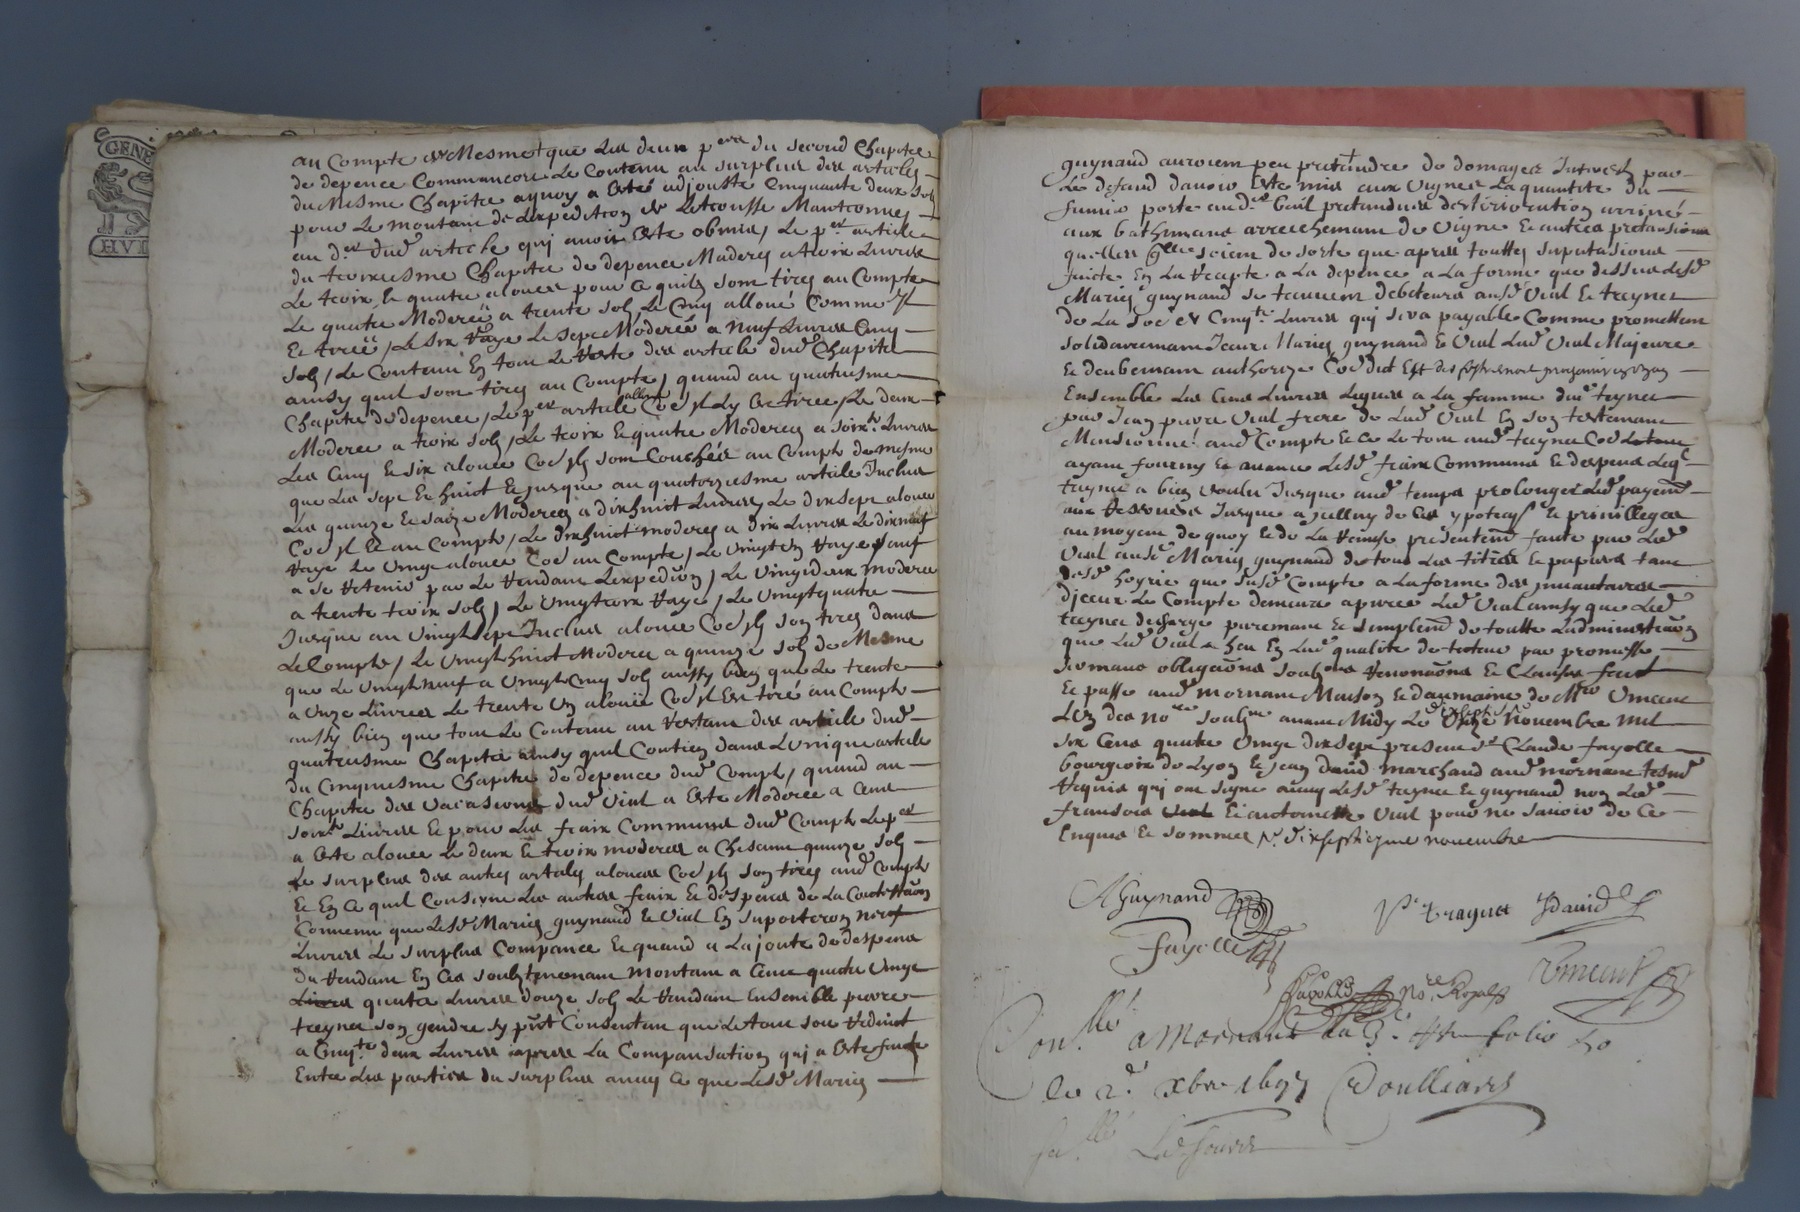 GENE
HVIT
au Compte de Mesme que Les deux p.ers du second Chapitre
de depence Commancon Le Contenu au surplus des articles
du Mesme Chapitre aquoy a Esté adjousté Cinquante deux sols
pour Le montant de Lexpedition de
au d.er dud article qui avoit Esté obmis, Le p.er article
du troixiesme Chapitre de depence Moderés a troix Livres
Le troix le quatre aloues pour Ce quils sont tirés au Compte
Le quatre Moderée a trente sols, Le Cinq alloué Comme Jl
Et tirée, Le six Raye Le sept Moderée a neuf Livres Cinq
sols, Le Contenu En tout Le Reste des article dud Chapitre
ainsy quil sont tires au Compte, quand au quatriesme
Chapitre de depence, Le p.er article alloue Co.e Jl Ly Est tiree, Le deux
Moderee a troix sols, Le troix Et quatre Moderes a soix.te Livres
Les Cinq Et six aloues Co.e Jls sont Couchés au Compte de mesme
que Les sept Et huict Et jusque au quatorziesme article Inclus
Les quinze Et saize Moderes a dixhuict Livres, Le dixsept aloue
Co.e Jl Est au Compte, Le dixhuict moderes a dix Livres Le dixneuf
Raye Le Vingt aloue Co.e au Compte, Le Vingt Un Raye sauf
a se Retenir par Le Rendant Lexpedion, Le Vingtdeux moderee
a trente troix sols, Le Vingttroix Raye, Le Vingtquatre
Jusque au Vingt sept Inclus aloues Co.e Jls son tires dans
Le Compte, Le Vingthuict Moderee a quinze sols de Mesme
que Le Vingtneuf a Vingt Cinq sols aussy bien que Le trente
a Unze Livres Le trente Un alouée Co.e Jl Est tiré au Compte
aussy bien que tout Le Contenu au Restant des article dud
quatriesme Chapitre ainsy quil Contien dans Lunique article
du Cinquiesme Chapitre de depence dud Compte, quand au
Chapitre des Vacasions dud Vial a Esté Moderée a Cent
soix.te Livres Et pour Les fraix Communs dud Compte Le p.er
a Esté alouée Le deux Et troix moderes a Chesaun quinze sols
Le surplus des autres articles aloues Co.e Jls son tires aud Compte
Et En Ce quil Conserne Les autres fraix Et despens de La Contestaon
Convenu que Lesd Mariés guynand Et Vial En suporteron neuf
Livres Le surplus Compancé Et quand a Lajoute de despens
du Rendant En Ces soubztenenant montant a Cent quatre Vingt
quatre Livres douze sols Le Rendant Ensemble pierre
treynet son gendre Jy pnt Consentent que Le tout soit Reduict
a Cinq.te deux Livres apres La Compansation qui a Esté faicte
Entre Les parties du surplus avec Ce que Lesd Mariés
guynand auroient peu pretandre de domages Interestz par
Le defaud davoir Esté mis aux Vignes La quantité du
fumier porté aud.er bail pretandues desteriorention arrivée
aux bathimans arrachemant de Vigne Et autres pretansions
quelles quelles soient de sorte que apres touttes suputasions
faicte En La Recepte a La depence a La forme que dessus Lesd
Mariés guynand se treuvent debiteurs ausd Vial Et treynet
de La So.e de Cinq.te Livres qui sera payable Comme promettent
solidairemant Jceux Mariés guynand Et Vial Lad Vial Majeure
Et deubement authorizé Co.e dict Est
Ensemble Les Cent Livres Leguée a La famme dud treynet
par Jean pierre Vial frere de Lad Vial En son testemant
Mensionné aud Compte Et Ce Le tout aud treynet
ayant fourny Et avancé Lesd fraix Communs Et despens Leq.l
treynet a bien voulu Jusque aud temps prolonger Led payem.t
aux Reserves Jusque a Jelluy de Ces ypoteqs Et privilleges
au moyent de quoy Et de La Remise presentem.t faite par Led
Vial ausd Mariés guynand de tous Les titres Et papiers tant
desd hoyrie que dusd Compte a La forme des Jnvantaires
dJceux Le Compte demeure apurée Led Vial ainsy que Led
treynet decharge puremant Et simplem.t de toutte Ladministraon
que Led Vial a heu En Lad qualité de tuteur par promesse
sermans obligaons soubz.ons Renonaons Et Clauses faict
Et passé aud mornant Maison Et domaine de M.re Vincent
LUn des no.res soubz.nes avant Midy Le dixseptie Novembre mil
six Cens quatre Vingt dixsept presens s.r Claude fayolle
bourgeoix de Lyon Et Jean David marchand aud mornant tesm.s
Requis qui ont signé avec Lesd treynet Et guynand non Led
fransois Vial Et antoinette Vial pour ne savoir de Ce
Enquis Et sommés p.r dixseptiesme novembre
AGuynand
P. traynet
JDavid
Fayolle
Vincent
No.re Royal
Con.llé a Mornant La 3.e folio 50
le 2.e xbre 1697 Doulliard